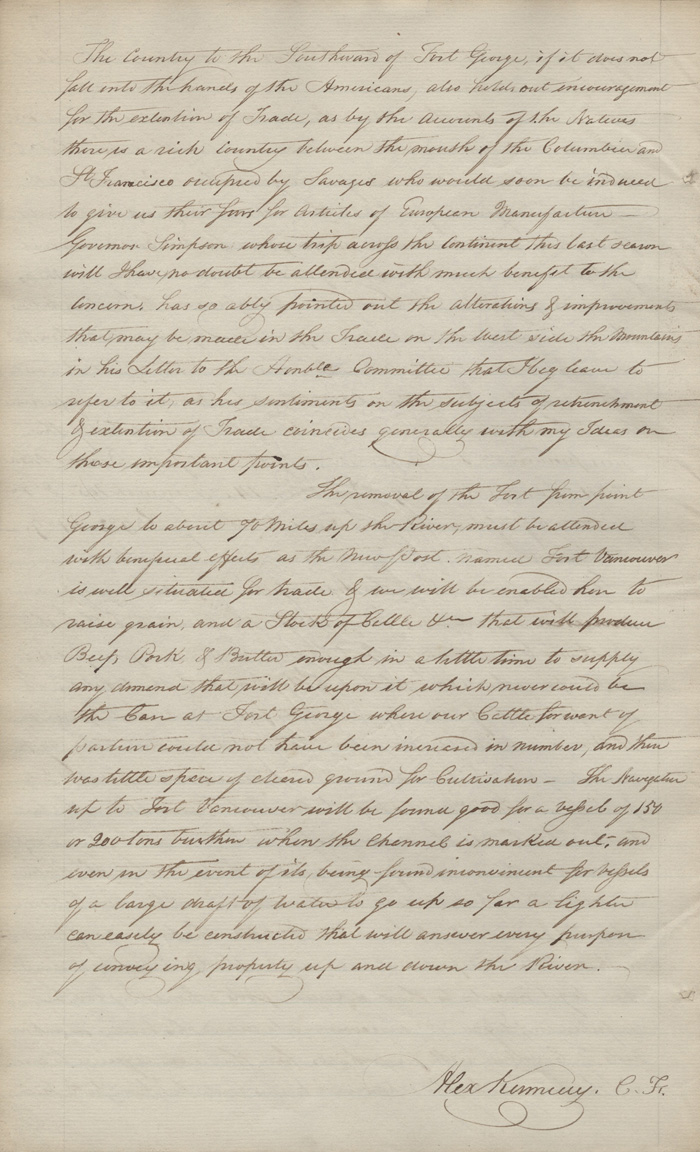 The Country to the Southward of Fort George, if it does not
fall into the hands of the Americans, also holds out encouragement
for the extention of Trade, as by the Accounts of the Natives
there is a rich Country between the mouth of the Columbia and
St. Francisco occupied by Savages who would soon be induced
to give us their furs for Articles of European Manufacture —
Governor Simpson whose trip across the Continent this last season
will I have no doubt be attended with much benefit to the
Concern, has so ably pointed out the alterations & improvements
that may be made in the Trade on the West side the Mountains
in his Letter to the Honble Committee that I beg leave to
refer to it, as his sentiments on the subjects of retrenchment
& extention of Trade coinsides generally with my Ideas on
those important points.
The removal of the Fort from point
George to about 70 Miles up the River, must be attended
with benificial effects as the New Post named Fort Vancouver
is well situated for trade & we will be enabled here to
raise grain, and a Stock of Cattle &c that will produce
Beef, Pork & Butter enough in a little time to supply
any demand that will be upon it which never could be
the Case at Fort George where our Cattle for want of
pasture could not have been increased in number, and there
was little space of cleared ground for Cultivation — The Navigation
up to Fort Vancouver will be found good for a vessel of 150
or 200 tons burthen when the Channel is marked out, and
even in the event of its being found inconvenient for vessels
of a large draft of water to go up so far a lighter
can easely be constructed that will answer every purpose
of conveying property up and down the River.
Alex Kennedy. C. Fr.